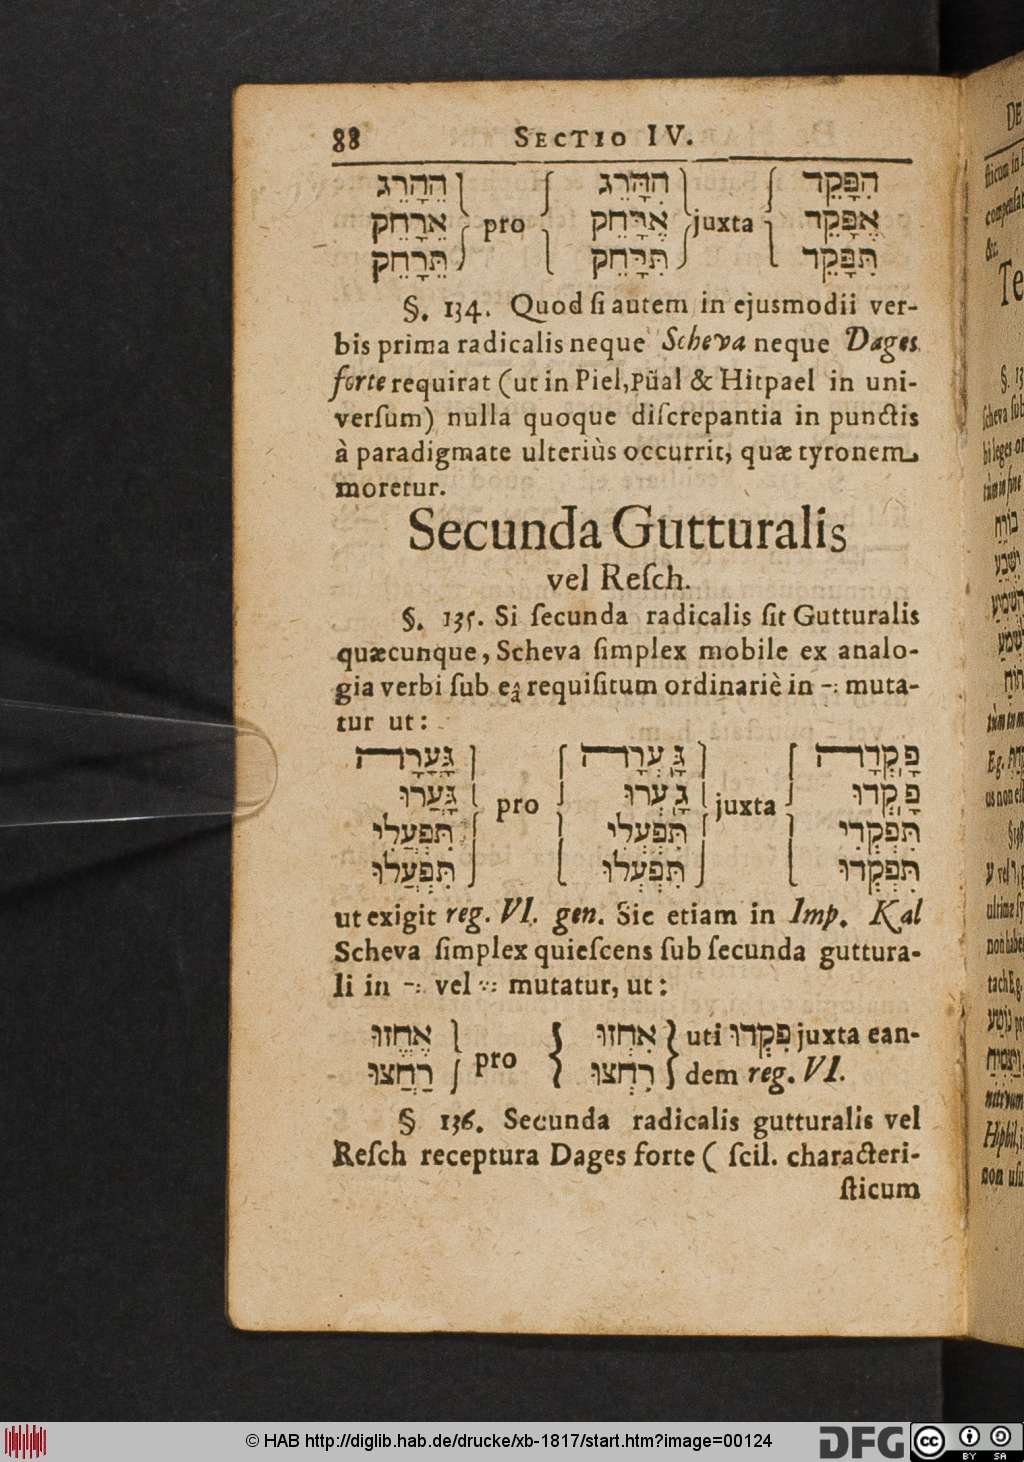 88 SECTIO IV.
הֵהָרֵג } pro { הִהָּרֵג } juxta { הִפָּקֵד
אֵרָחֵק אֶרָּחֵק אֶפָּקֵד
תֵּרָחֵק תִּרָּחֵק תִּפָּקֵד
§. 134. Quod ſi autem in ejusmodii ver-
bis prima radicalis neque Scheva neque Dages
forte requirat (ut in Piel, Püal & Hitpael in uni-
verſum) nulla quoque diſcrepantia in punctis
à paradigmate ulteriùs occurrit, quæ tyronem
moretur.
Secunda Gutturalis
vel Reſch.
§. 135. Si ſecunda radicalis ſit Gutturalis
quæcunque, Scheva ſimplex mobile ex analo-
gia verbi ſub eâ requiſitum ordinariè in -: muta-
tur ut:
גָּעֲרָה } pro { גָּעְרָה } juxta { פָּקְדָה
גָּעֲרוּ גָּעְרוּ פָּקְדוּ
תִּפְעֲלִי תִּפְעְלִי תִּפְקְדִי
תִּפְעֲלוּ תִּפְעְלוּ תִּפְקְדוּ
ut exigit reg. VI. gen. Sic etiam in Imp. Kal
Scheva ſimplex quieſcens ſub ſecunda guttura-
li in -: vel ∵: mutatur, ut:
אֶחֱזוּ } pro { אִחְזוּ } uti פִּקְדוּ juxta ean-
רַחֲצוּ רִחְצוּ dem reg. VI.
§ 136. Secunda radicalis gutturalis vel
Reſch receptura Dages forte ( ſcil. characteri-
ſticum
© HAB http://diglib.hab.de/drucke/xb-1817/start.htm?image=00124
DFG
cc BY SA